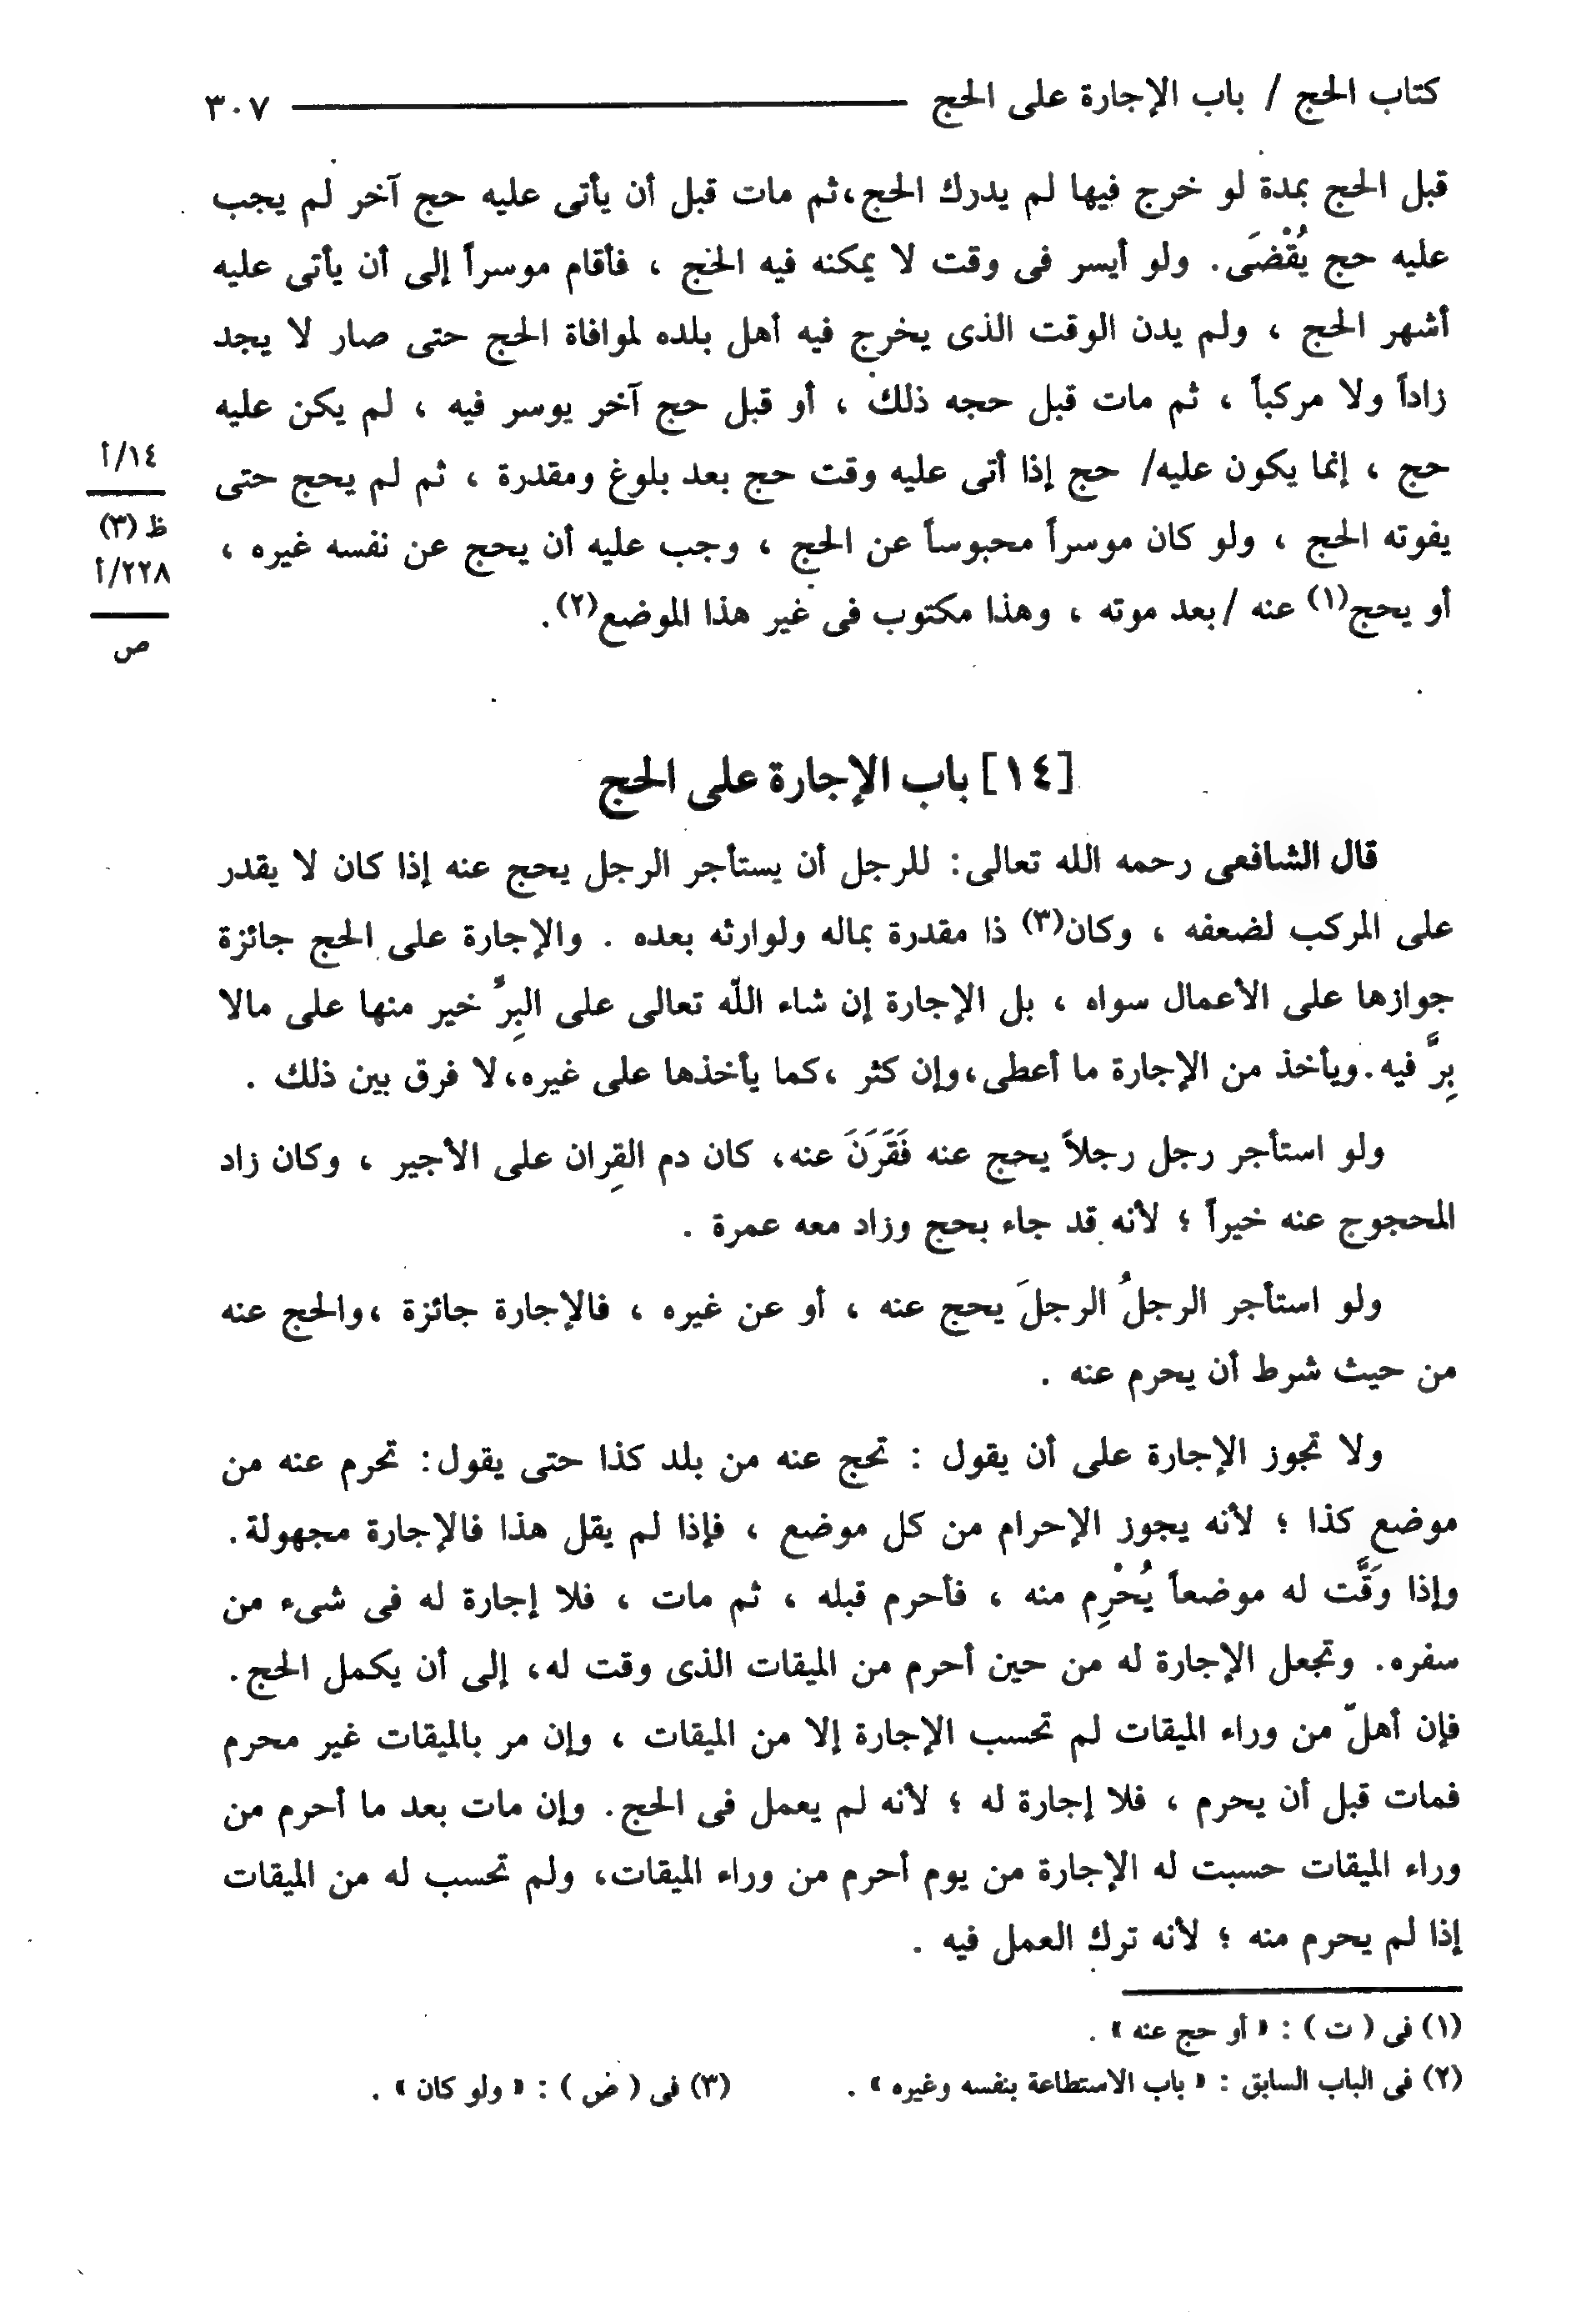 كتاب الحج / باب الإجارة على الحج ٣٠٧
قبل الحج بمدة لو خرج فيها لم يدرك الحج،ثم مات قبل أن يأتى عليه حج آخر لم يجب
عليه حج يُقْضَى. ولو أيسر فى وقت لا يمكنه فيه الحج ، فأقام موسراً إلى أن يأتى عليه
أشهر الحج ، ولم يدن الوقت الذى يخرج فيه أهل بلده لموافاة الحج حتى صار لا يجد
زاداً ولا مركباً ، ثم مات قبل حجه ذلك ، أو قبل حج آخر يوسر فيه ، لم يكن عليه
حج ، إنما يكون عليه/ حج إذا أتى عليه وقت حج بعد بلوغ ومقدرة ، ثم لم يحج حتى
يفوته الحج ، ولو كان موسراً محبوساً عن الحج ، وجب عليه أن يحج عن نفسه غيره ،
أو يحج(١) عنه /بعد موته ، وهذا مكتوب فى غير هذا الموضع(٢).
١٤/أ
ظ (٣)
٢٢٨/أ
ص
[١٤] باب الإجارة على الحج
قال الشافعى رحمه الله تعالى: للرجل أن يستأجر الرجل يحج عنه إذا كان لا يقدر
على المركب لضعفه ، وكان(٣) ذا مقدرة بماله ولوارثه بعده . والإجارة على الحج جائزة
جوازها على الأعمال سواه ، بل الإجارة إن شاء اللّه تعالى على البِرِّ خير منها على مالا
بِرَّ فيه.ويأخذ من الإجارة ما أعطى،وإن كثر ،كما يأخذها على غيره،لا فرق بين ذلك .
ولو استأجر رجل رجلاً يحج عنه فَقَرَنَ عنه، كان دم القِران على الأجير ، وكان زاد
المحجوج عنه خيراً ؛ لأنه قد جاء بحج وزاد معه عمرة .
ولو استأجر الرجلُ الرجلَ يحج عنه ، أو عن غيره ، فالإجارة جائزة ،والحج عنه
من حيث شرط أن يحرم عنه .
ولا تجوز الإجارة على أن يقول : تحج عنه من بلد كذا حتى يقول: تحرم عنه من
موضع كذا ؛ لأنه يجوز الإحرام من كل موضع ، فإذا لم يقل هذا فالإجارة مجهولة.
وإذا وَقَّت له موضعاً يُحْرِم منه ، فأحرم قبله ، ثم مات ، فلا إجارة له فى شىء من
سفره. وتجعل الإجارة له من حين أحرم من الميقات الذى وقت له، إلى أن يكمل الحج.
فإن أهلّ من وراء الميقات لم تحسب الإجارة إلا من الميقات ، وإن مر بالميقات غير محرم
فمات قبل أن يحرم ، فلا إجارة له ؛ لأنه لم يعمل فى الحج. وإن مات بعد ما أحرم من
وراء الميقات حسبت له الإجارة من يوم أحرم من وراء الميقات، ولم تحسب له من الميقات
إذا لم يحرم منه ؛ لأنه ترك العمل فيه .
(١) فى ( ت ) : « أو حج عنه » .
(٢) فى الباب السابق : « باب الاستطاعة بنفسه وغيره » . (٣) فى ( ض ) : « ولو كان » .